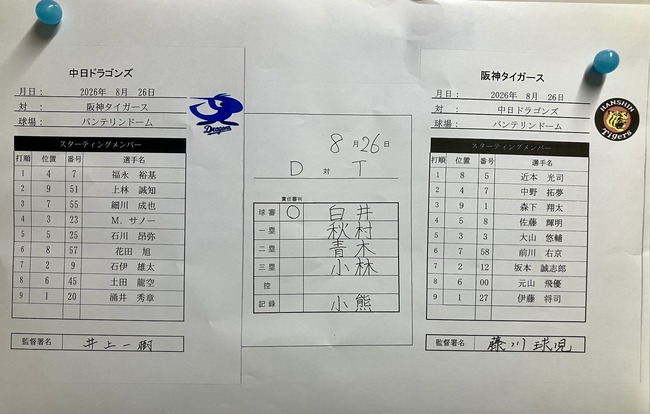 中日ドラゴンズ
月日： 2026年 8月 26日
対 ： 阪神タイガース
球場： バンテリンドーム
Dragons
スターティングメンバー
打順 位置 番号 選手名
1 4 7 福永 裕基
2 9 51 上林 誠知
3 7 55 細川 成也
4 3 23 M．サノー
5 5 25 石川 昂弥
6 8 57 花田 旭
7 2 9 石伊 雄太
8 6 45 土田 龍空
9 1 20 涌井 秀章
監督署名 井上一樹
8月26日
D 対 T
責任審判
球審 ○ 白井
一塁 秋村
二塁 青木
三塁 小林
控
記録 小熊
阪神タイガース
月日： 2026年 8月 26日
対 ： 中日ドラゴンズ
球場： バンテリンドーム
HANSHIN Tigers
スターティングメンバー
打順 位置 番号 選手名
1 8 5 近本 光司
2 4 7 中野 拓夢
3 9 1 森下 翔太
4 5 8 佐藤 輝明
5 3 3 大山 悠輔
6 7 58 前川 右京
7 2 12 坂本 誠志郎
8 6 00 元山 飛優
9 1 27 伊藤 将司
監督署名 藤川球児